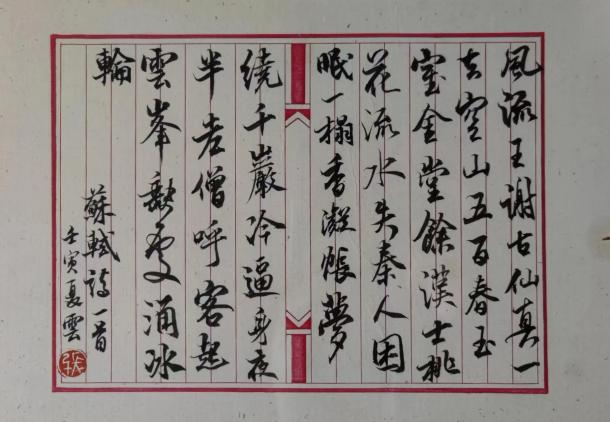 風流王謝古仙真一
去空山五百春玉
室金堂餘漢士桃
花流水失秦人困
眠一榻香凝帳夢
繞千巖冷逼身夜
半老僧呼客起
雲峯缺處涌冰
輪
蘇軾詩一首
壬寅夏雲